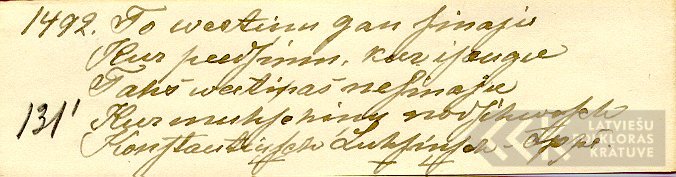 1492. To weetinu gan sinaju
Kur peedsimu, kur isaugu
Tahs weetinas nesinaju
131' Kur muhschinu nodsihwosch
Konstantinsch Luksinsch -
LATVIEŠU
FOLKLORAS
KRĀTUVE